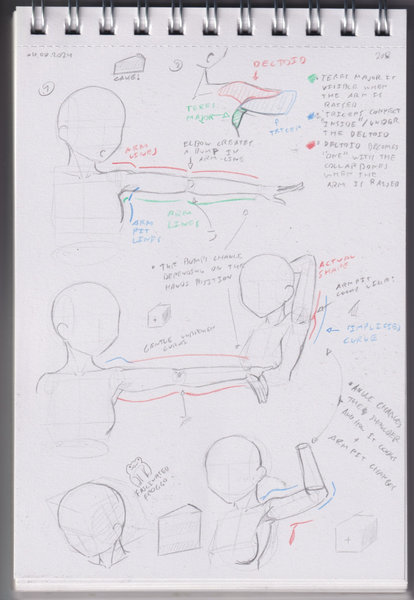 208
CAKE!
①
③
DELTOID
TERES
MAJOR
TRICEP
TERES MAJOR IS
VISIBLE WHEN
THE ARM IS
RAISED
TRICEPS CONNECT
"INSIDE"/UNDER
THE DELTOID
DELTOID BECOMES
"ONE" WITH THE
COLLARBONES
WHEN THE
ARM IS RAISED
ARM
LINES
ELBOW CREATES
A BUMP IN
ARM-LINE
ARM
PIT
LINES
ARM
LINES
* THE BUMPS CHANGE
DEPENDING ON THE
HANDS POSITION
ACTUAL
SHAPE
ARMPIT
SIMPLIFIED
CURVE
GENTLE
CURVE
* ANGLE CHANGES
THE SHOULDER
AND HOW IT LOOKS
+ ARMPIT CHANGES
FASCINATED
FROGGO